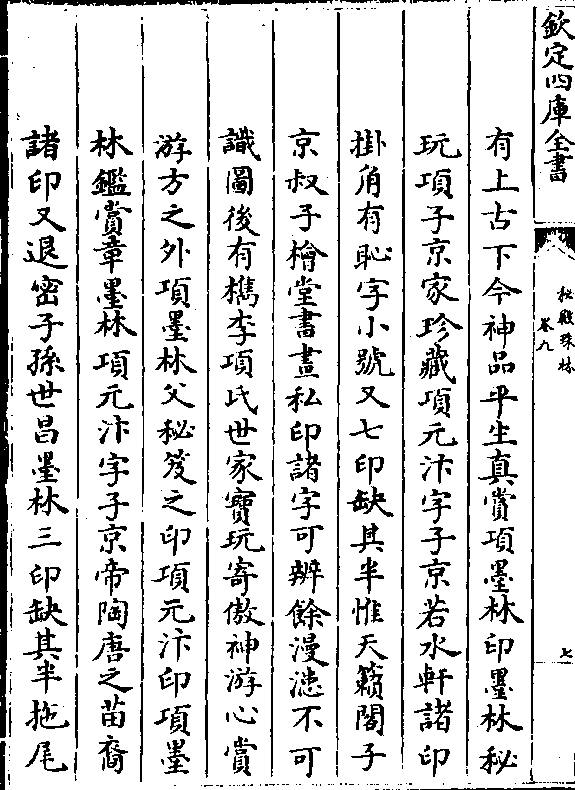 欽定四庫全書
秘殿珠林
卷九
七
有上古下今神品平生真賞項墨林印墨林秘
玩項子京家珍藏項元汴字子京若水軒諸印
掛角有恥字小號又七印缺其半惟天籟閣子
京叔子檜堂書畫私印諸字可辨餘漫漶不可
識圖後有檇李項氏世家寶玩寄傲神游心賞
游方之外項墨林父秘笈之印項元汴印項墨
林鑑賞章墨林項元汴字子京帝陶唐之苗裔
諸印又退密子孫世昌墨林三印缺其半拖尾